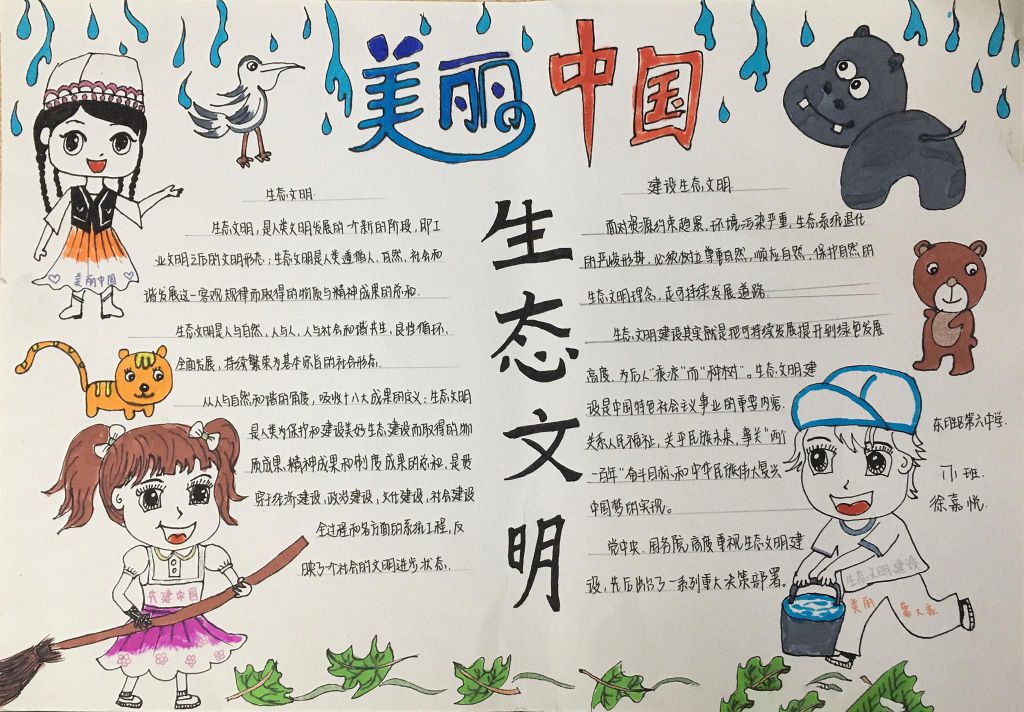 美丽中国
生态文明
生态文明
生态文明,是人类文明发展的一个新的阶段,即工
业文明之后的文明形态;生态文明是人类遵循人、自然、社会和
谐发展这一客观规律而取得的物质与精神成果的总和.
生态文明是人与自然,人与人,人与社会和谐共生,良性循环.
全面发展,持续繁荣为基本宗旨的社会形态.
从人与自然和谐的角度,吸收十八大成果的定义:生态文明
是人类为保护和建设美好生态建设而取得的物
质成果,精神成果和制度成果的总和,是贯
穿于经济建设,政治建设,文化建设,社会建设
全过程和各方面的系统工程,反
映了个社会的文明进步状态.
建设生态文明
面对资源约束趋紧、环境污染严重,生态系统退化
的严峻形势,必须树立尊重自然,顺应自然,保护自然的
生态文明理念,走可持续发展道路.
生态文明建设其实就是把可持续发展提升到绿色发展
高度,为后人"乘凉"而"种树"。生态文明建
设是中国特色社会主义事业的重要内容.
关系人民福祉,关乎民族未来,事关"两个
一百年"奋斗目标和中华民族伟大复兴
中国梦的实现。
党中央、国务院高度重视生态文明建
设,先后出台了一系列重大决策部署。
美丽中国
共建中国
生态文明建设
美丽
靠大家
第六中学.
班.
徐嘉悦.